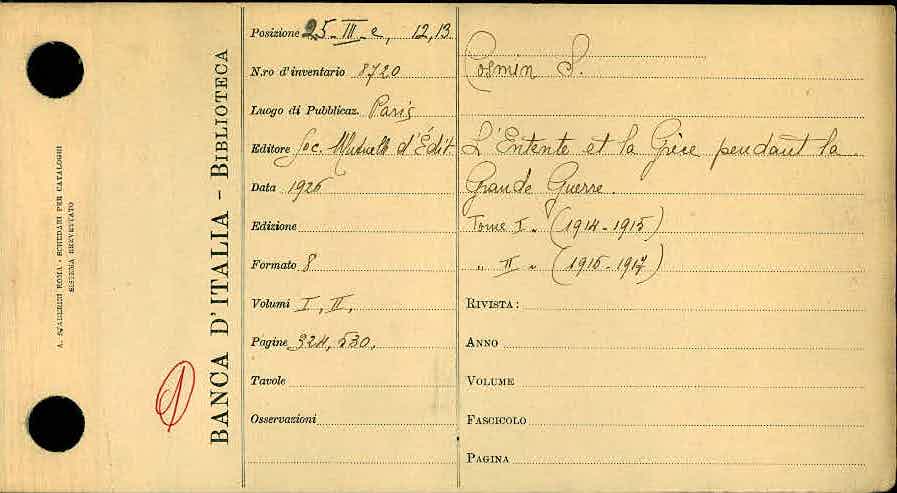 A. STADERINI ROMA - SCHEDARI PER CATALOGHI
SISTEMA BREVETTATO
1
BANCA D'ITALIA - BIBLIOTECA
Posizione 25-III-e, 12,13
N.ro d'inventario 8720
Luogo di Pubblicaz. Paris
Editore Soc. Mutuelle d'Édit.
Data 1926
Edizione
Formato 8
Volumi I, II,
Pagine 324, 530,
Tavole
Osservazioni
Cosmin S.
L'Entente et la Grèce pendant la
Grande Guerre.
Tome I - (1914-1915)
" II - (1916-1917)
RIVISTA:
ANNO
VOLUME
FASCICOLO
PAGINA